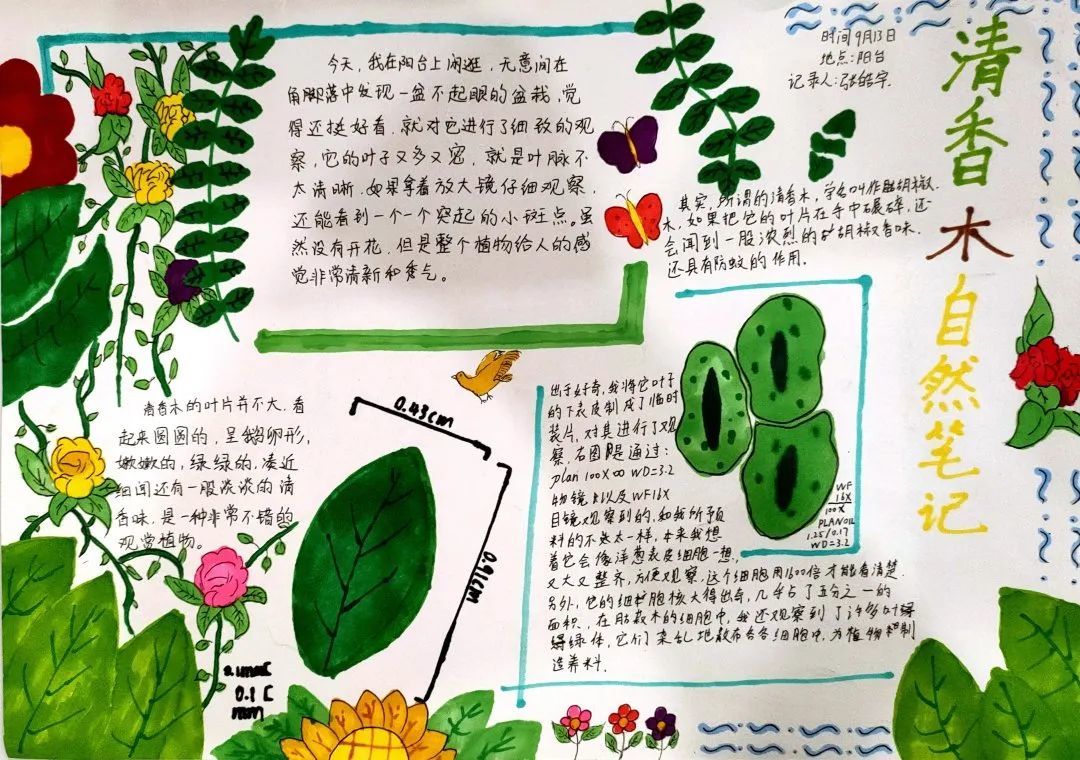 清香木自然笔记
时间9月13日
地点:阳台
记录人:张皓宇.
今天,我在阳台上闲逛,无意间在
角脚落中发现一盆不起眼的盆栽,觉
得还挺好看.就对它进行了细致的观
察,它的叶子又多又宽,就是叶脉不
太清晰.如果拿着放大镜仔细观察,
还能看到一个一个突起的小斑点。虽
然没有开花,但是整个植物给人的感
觉非常清新和秀气。
其实,所谓的清香木,学名叫作胡椒
木,如果把它的叶片在手中碾碎,还
会闻到一股浓烈的胡椒香味.
还具有防蚊的作用.
清香木的叶片并不大.看
起来圆圆的,呈鹅卵形,
嫩嫩的,绿绿的,凑近
细闻还有一股淡淡的清
香味,是一种非常不错的
观赏植物。
0.43cm
0.91cm
0.1
mm
出于好奇,我将它叶子
的下表皮制成了临时
装片,对其进行了观
察,右图是通过:
plan 100X ∞ WD=3.2
物镜以及WF16X
目镜观察到的,和我所预
料的不太一样,本来我想
着它会像洋葱表皮细胞一想,
又大又整齐,方便观察.这个细胞用1600倍才能看清楚.
另外,它的细胞核大得出奇,几乎占了五分之一的
面积.在胡椒木的细胞中,我还观察到了许多叶绿
绿体,它们杂乱地散布在各细胞中,为植物制
造养料.
WF
16X
100X
PLANOIL
1.25/0.17
WD=3.2